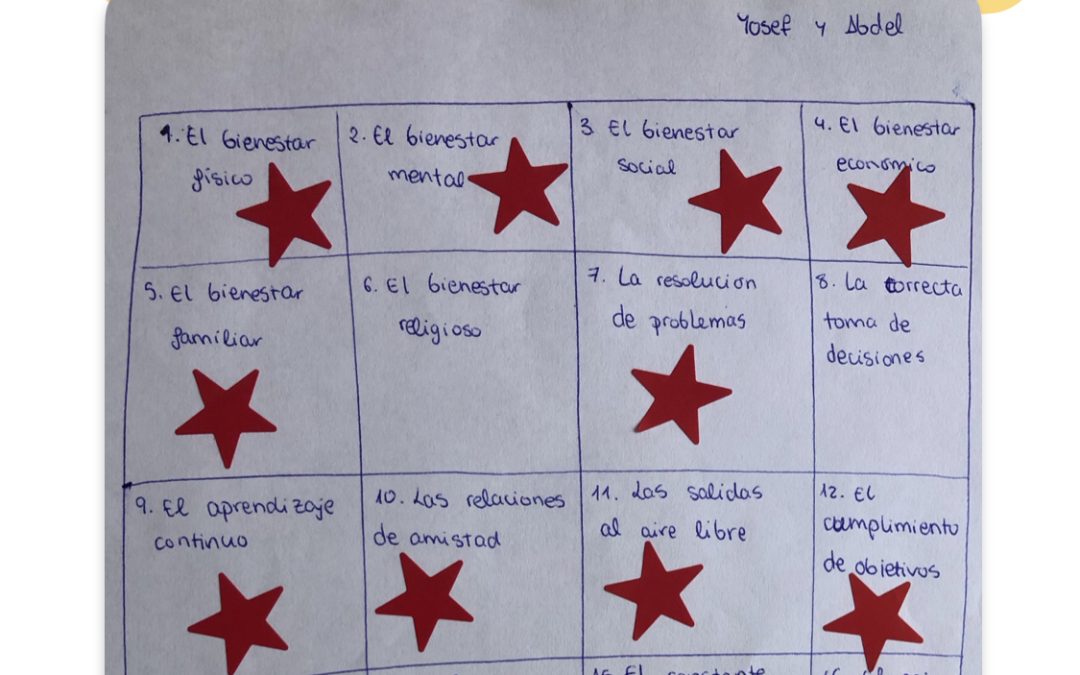 Yosef y Abdel
1. El bienestar
físico
2. El bienestar
mental
3 El bienestar
social
4. El bienestar
económico
5. El bienestar
familiar
6. El bienestar
religioso
7. La resolucion
de problemas
8. La correcta
toma de
decisiones
9. El aprendizaje
continuo
10. Las relaciones
de amistad
11. Las salidas
al aire libre
12. El
cumplimiento
de objetivos
15 El constante